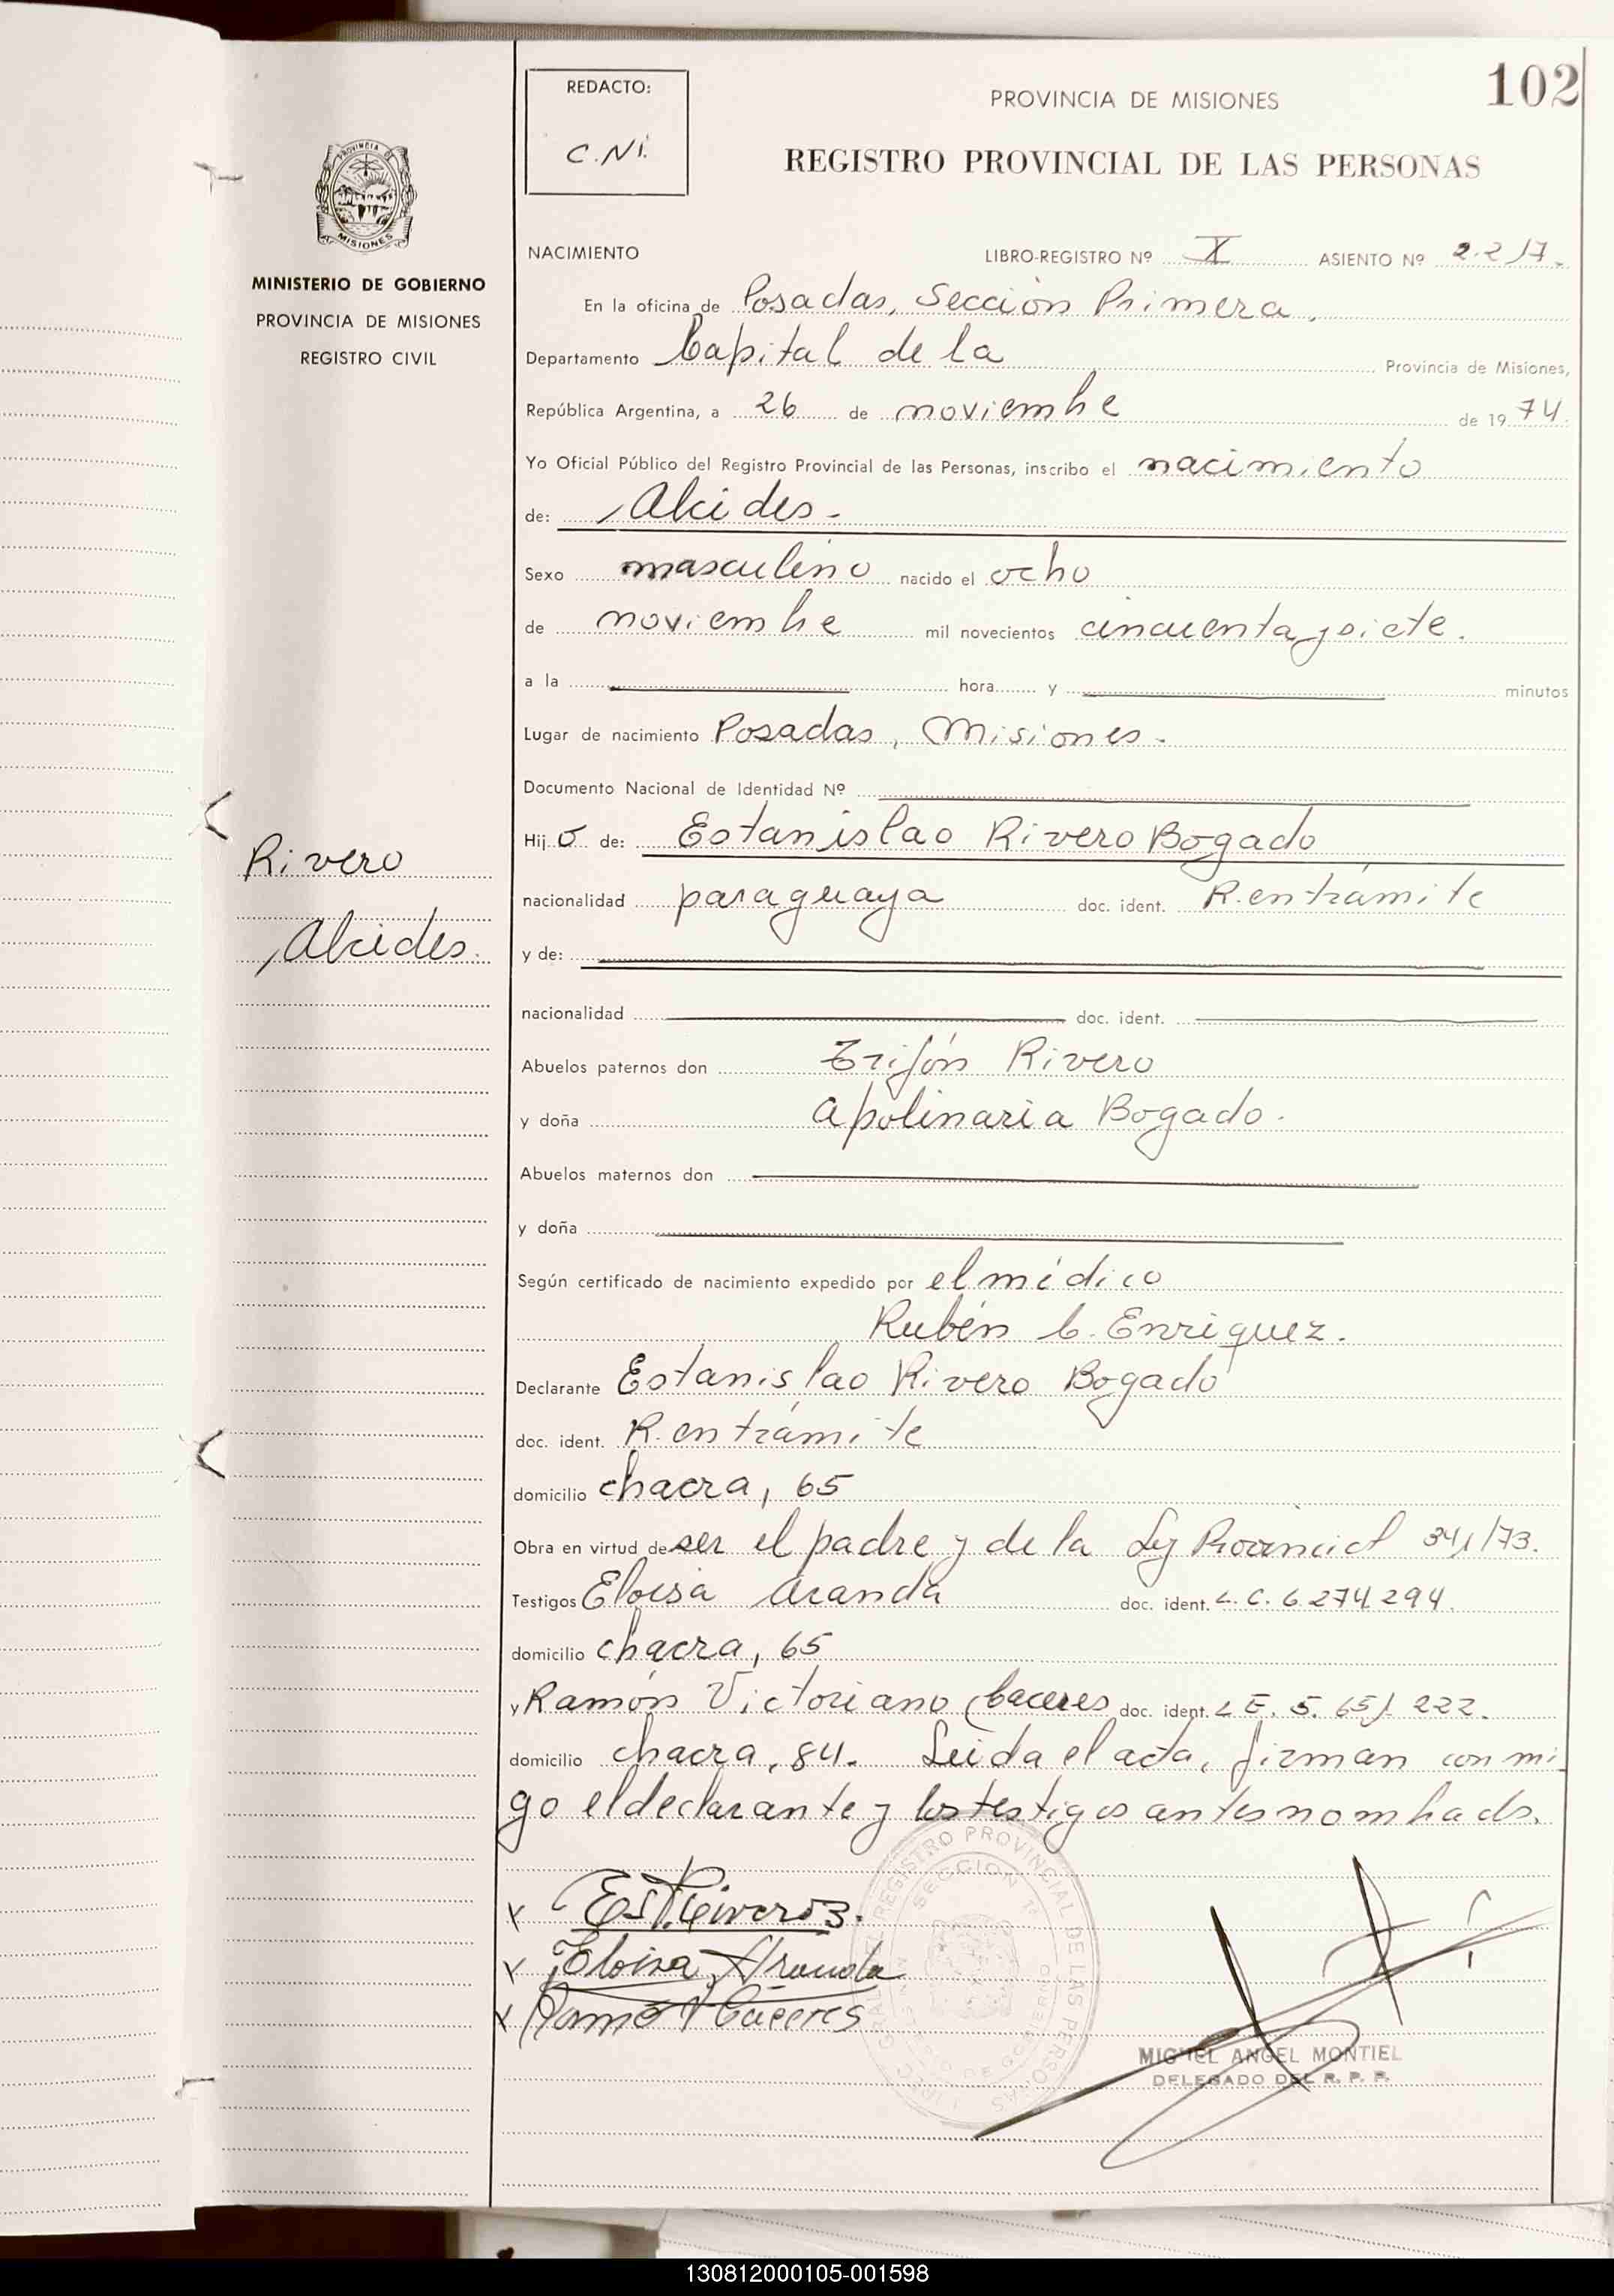 102
REDACTO:
C.Ni.
PROVINCIA DE MISIONES
REGISTRO PROVINCIAL DE LAS PERSONAS
PROVINCIA DE
MISIONES
MINISTERIO DE GOBIERNO
PROVINCIA DE MISIONES
REGISTRO CIVIL
NACIMIENTO LIBRO-REGISTRO Nº X ASIENTO Nº 2.217.
En la oficina de Posadas, Sección Primera,
Departamento Capital de la Provincia de Misiones,
República Argentina, a 26 de noviembre de 1974.
Yo Oficial Público del Registro Provincial de las Personas, inscribo el nacimiento
de: Alcides.
Sexo masculino nacido el ocho
de noviembre mil novecientos cincuenta y siete.
a la hora y minutos
Lugar de nacimiento Posadas, Misiones.
Documento Nacional de Identidad Nº
Hijo de: Estanislao Rivero Bogado
Rivero
Alcides.
nacionalidad paraguaya doc. ident. R. en trámite
y de:
nacionalidad doc. ident.
Abuelos paternos don Trifón Rivero
y doña Apolinaria Bogado.
Abuelos maternos don
y doña
Según certificado de nacimiento expedido por el médico
Rubén C. Enriquez.
Declarante Estanislao Rivero Bogado
doc. ident. R. en trámite
domicilio chacra, 65
Obra en virtud de ser el padre y de la Ley Provincial 341/73.
Testigos Eloisa Aranda doc. ident. L.C. 6.274.294.
domicilio chacra, 65
y Ramón Victoriano Caceres doc. ident. L E. 5. 651. 222.
domicilio chacra, 84. Leida el acta, firman con mi
go el declarante y los testigos antes nombrads.
Est. Rivero B.
Eloisa Aranda
Ramón V Cáceres
REGISTRO PROVINCIAL DE LAS PERSONAS
SECCION 1ª
MIGUEL ANGEL MONTIEL
DELEGADO DEL R. P. P.
130812000105-001598